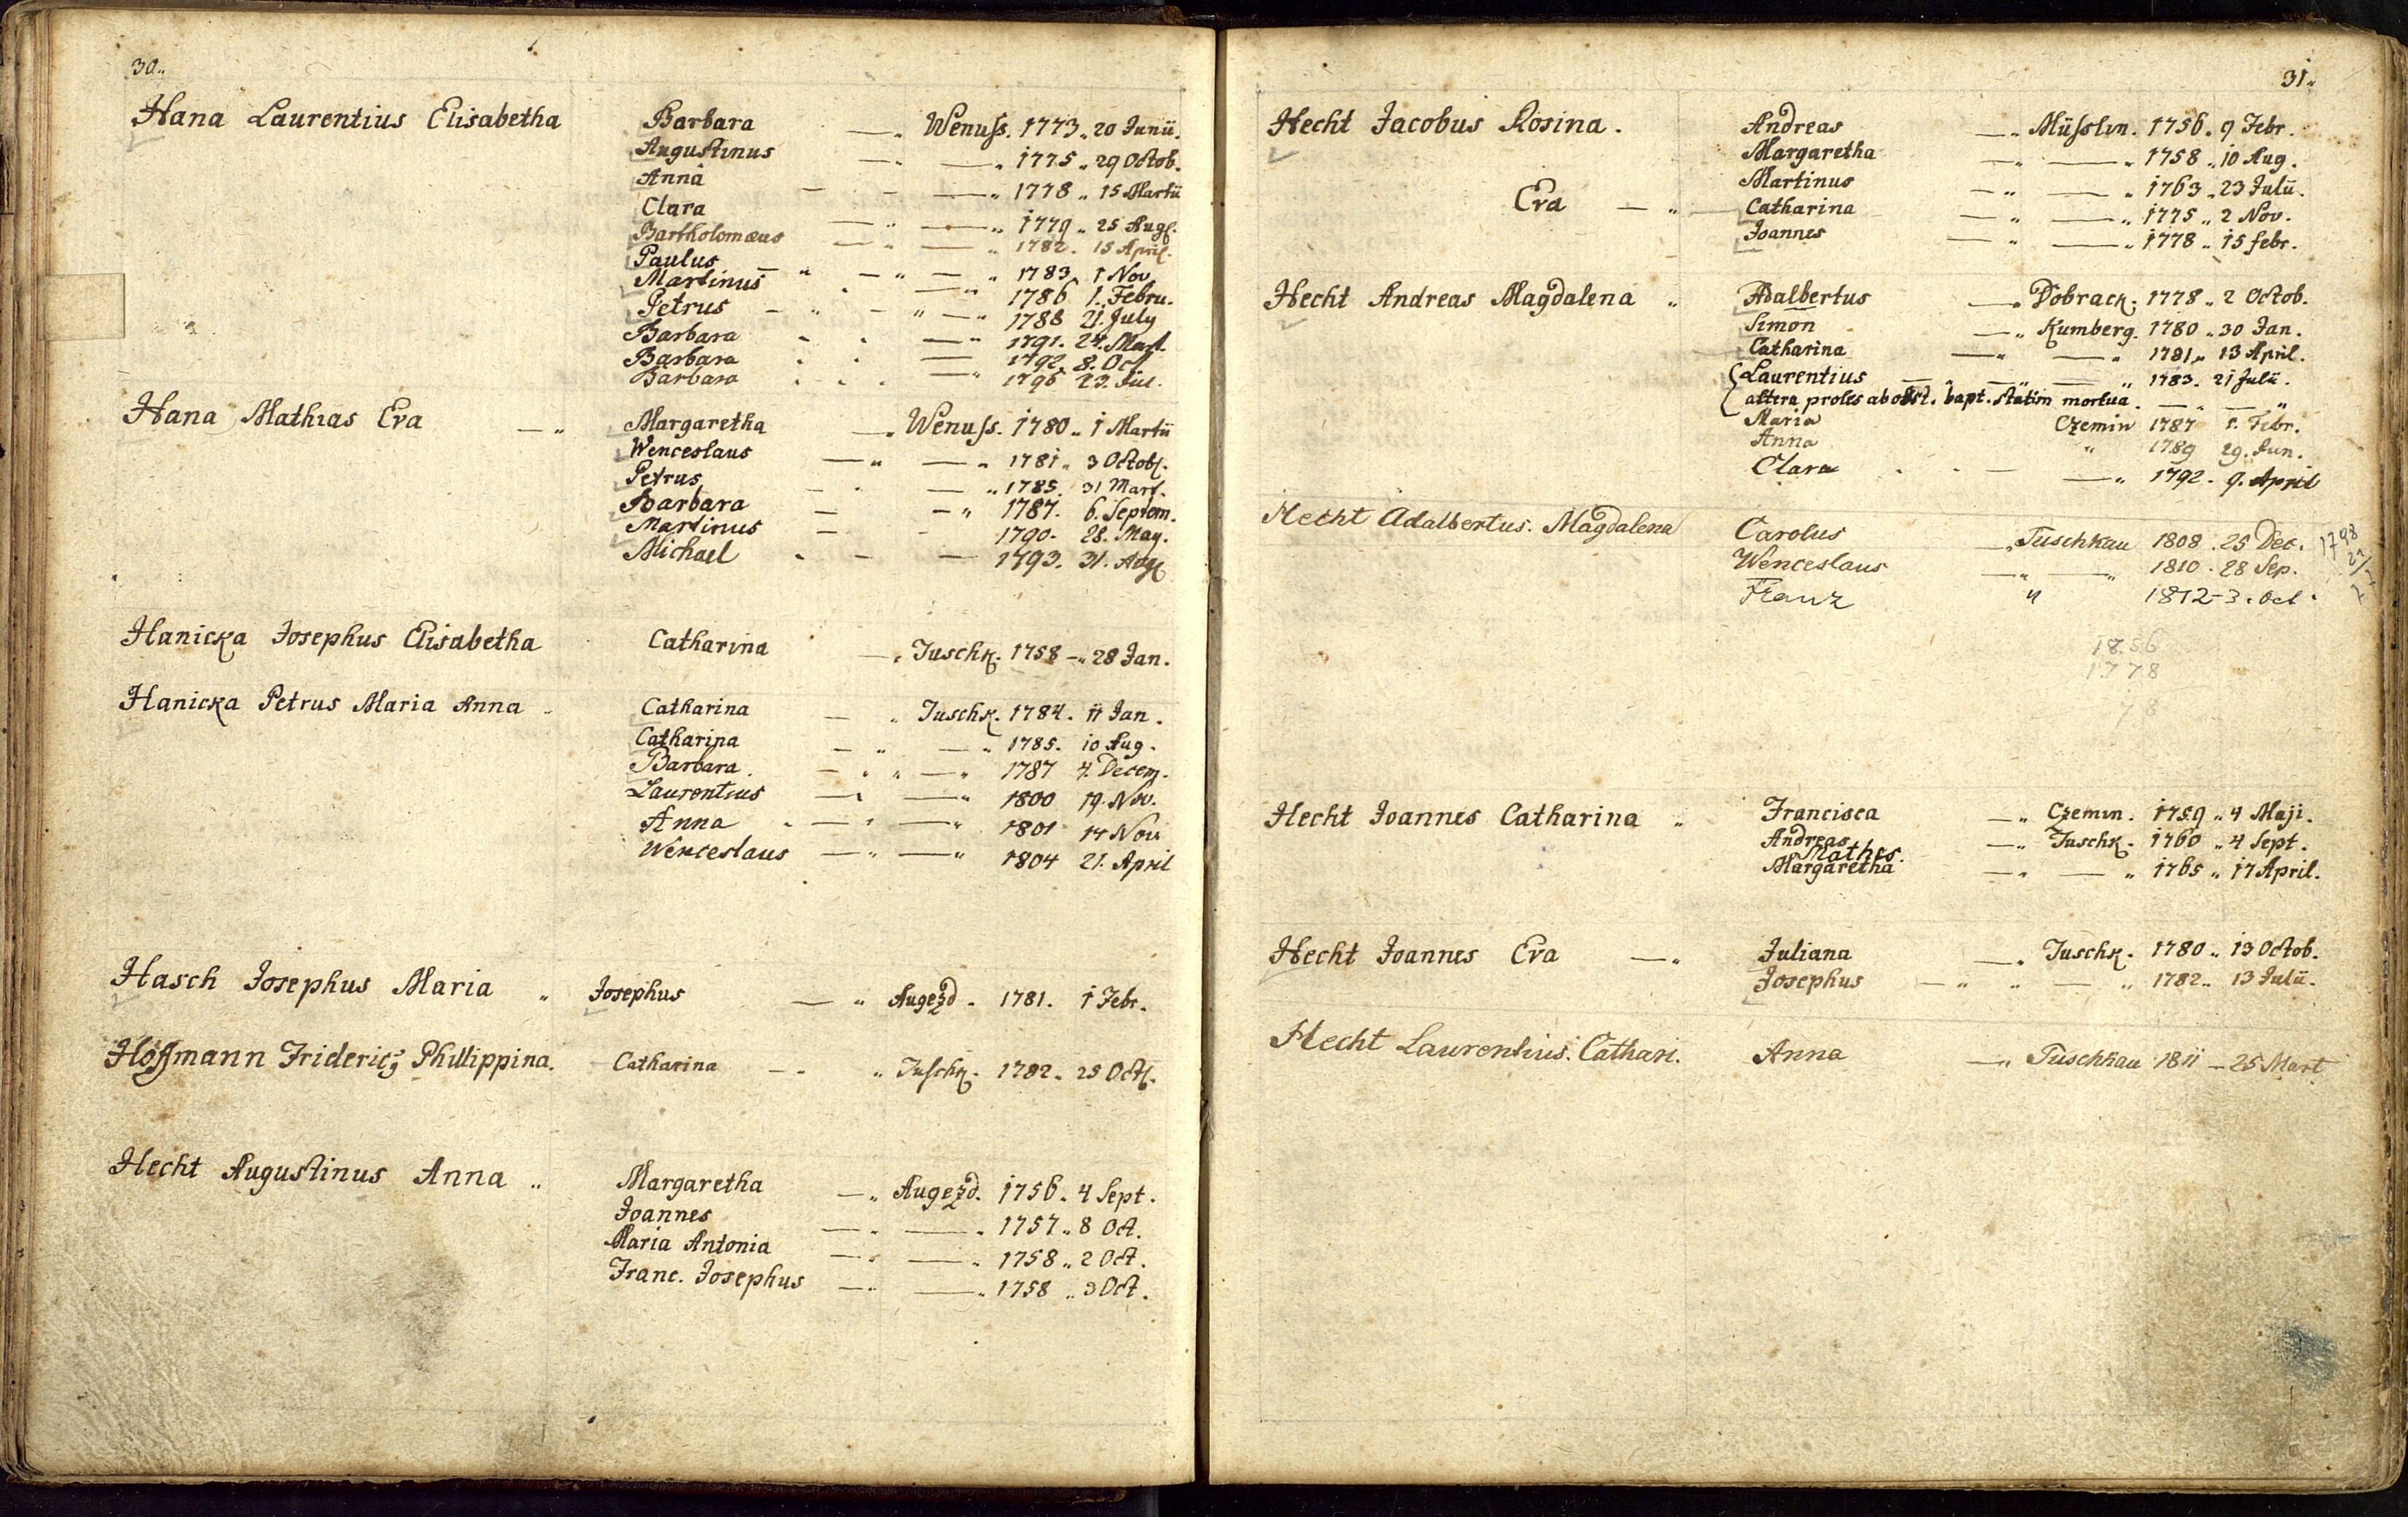 30.
Hana Laurentius Elisabetha Barbara —„ Wenuſs. 1773„ 20 Junii.
Augustinus —„ —„ 1775„ 29 Octob.
Anna — - —„ 1778„ 15 Martii
Clara —„ —„ 1779„ 25 Aug.
Bartholomæus —„ —„ 1782. 15 April.
Paulus —„ —„ —„ 1783. 1 Nov
Martinus „ —„ 1786 1. Febru.
Petrus —„ —„ —„ 1788 21. July
Barbara - - —„ 1791. 24. Mart.
Barbara - - — 1792. 8. Oct
Barbara - - - —„ 1796 23. Jul.
Hana Mathias Eva —„ Margaretha —„ Wenuſs. 1780„ 1 Martii
Wenceslaus —„ —„ 1781„ 3 Octob.
Petrus — - —„ 1785. 31 Mart.
Barbara — —„ 1787. 6. Septem.
Martinus — - 1790. 28. May.
Michael - - — 1793. 31. Aug
Hanicka Josephus Elisabetha Catharina —„ Tuschk. 1758 —„ 28 Jan.
Hanicka Petrus Maria Anna - Catharina — „ Tuschk. 1784. 11 Jan.
Catharina —„ —„ 1785. 10 Aug.
Barbara. —„ „ —„ 1787 4. Decem.
Laurentius —„ —„ 1800 19. Nov.
Anna - —„ —„ 1801 14 Nov
Wenceslaus —„ —„ 1804 21. April
Hasch Josephus Maria „ Josephus —„ Augezd - 1781. 1 Febr.
Hoffmann Frideric9 Phillippina. Catharina —- „ Tuſchk. 1782. 25 Oct.
Hecht Augustinus Anna „ Margaretha —„ Augezd. 1756. 4 Sept.
Joannes —„ —„ 1757„ 8 Oct.
Maria Antonia —„ —„ 1758„ 2 Oct.
Franc. Josephus —„ —„ 1758„ 3 Oct.
31.
Hecht Jacobus Rosina. Andreas —„ Müſslin. 1756. 9 Febr.
Margaretha —„ —„ 1758„ 10 Aug.
Martinus —„ —„ 1763„ 23 Julii.
Eva —„ Catharina —„ —„ 1775„ 2 Nov.
Joannes —„ —„ 1778„ 15 febr.
Hecht Andreas Magdalena „ Adalbertus —„ Dobrack. 1778„ 2 Octob.
Simon —„ Kumberg. 1780„ 30 Jan.
Catharina —„ —„ 1781„ 13 April.
Laurentius —„ —„ —„ 1783. 21 Julii.
altera proles ab obst. bapt. statim mortua. —„ —„
Maria Czemin 1787 1. Febr.
Anna „ 1789 29. Jun.
Clara - - — —„ 1792. 9. April
Hecht Adalbertus. Magdalena Carolus —„ Tuschkau 1808. 25 Dec. 1798
Wenceslaus —„ —„ 1810. 28 Sep.
Franz „ 1812 - 3. Oct.
1856
1778
78
Hecht Joannes Catharina „ Francisca —„ Czemin. 1759„ 4 Maji.
Andreas —„ Tuschk. 1760„ 4 Sept.
Mathes.
Margaretha —„ —„ 1765„ 17 April.
Hecht Joannes Eva —„ Juliana —„ Tuschk. 1780„ 13 Octob.
Josephus —„ „ —„ 1782„ 13 Julii.
Hecht Laurentius. Cathari. Anna —„ Tuschkau 1811 — 25 Mart